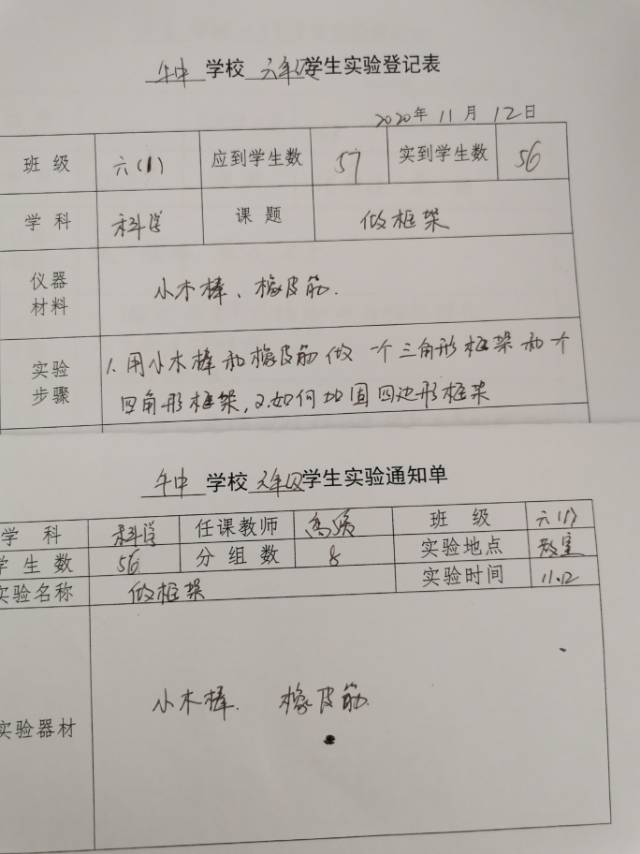 牛中 学校 六年级学生实验登记表
2020年 11月 12日
班级 六(1) 应到学生数 57 实到学生数 56
学科 科学 课题 做框架
仪器材料 小木棒、橡皮筋.
实验步骤 1.用小木棒和橡皮筋做一个三角形框架和个
四角形框架,2.如何加固四边形框架
牛中 学校 六年级学生实验通知单
学科 科学 任课教师 班级 六(1)
学生数 56 分组数 8 实验地点 教室
实验名称 做框架 实验时间 11.12
实验器材 小木棒. 橡皮筋.